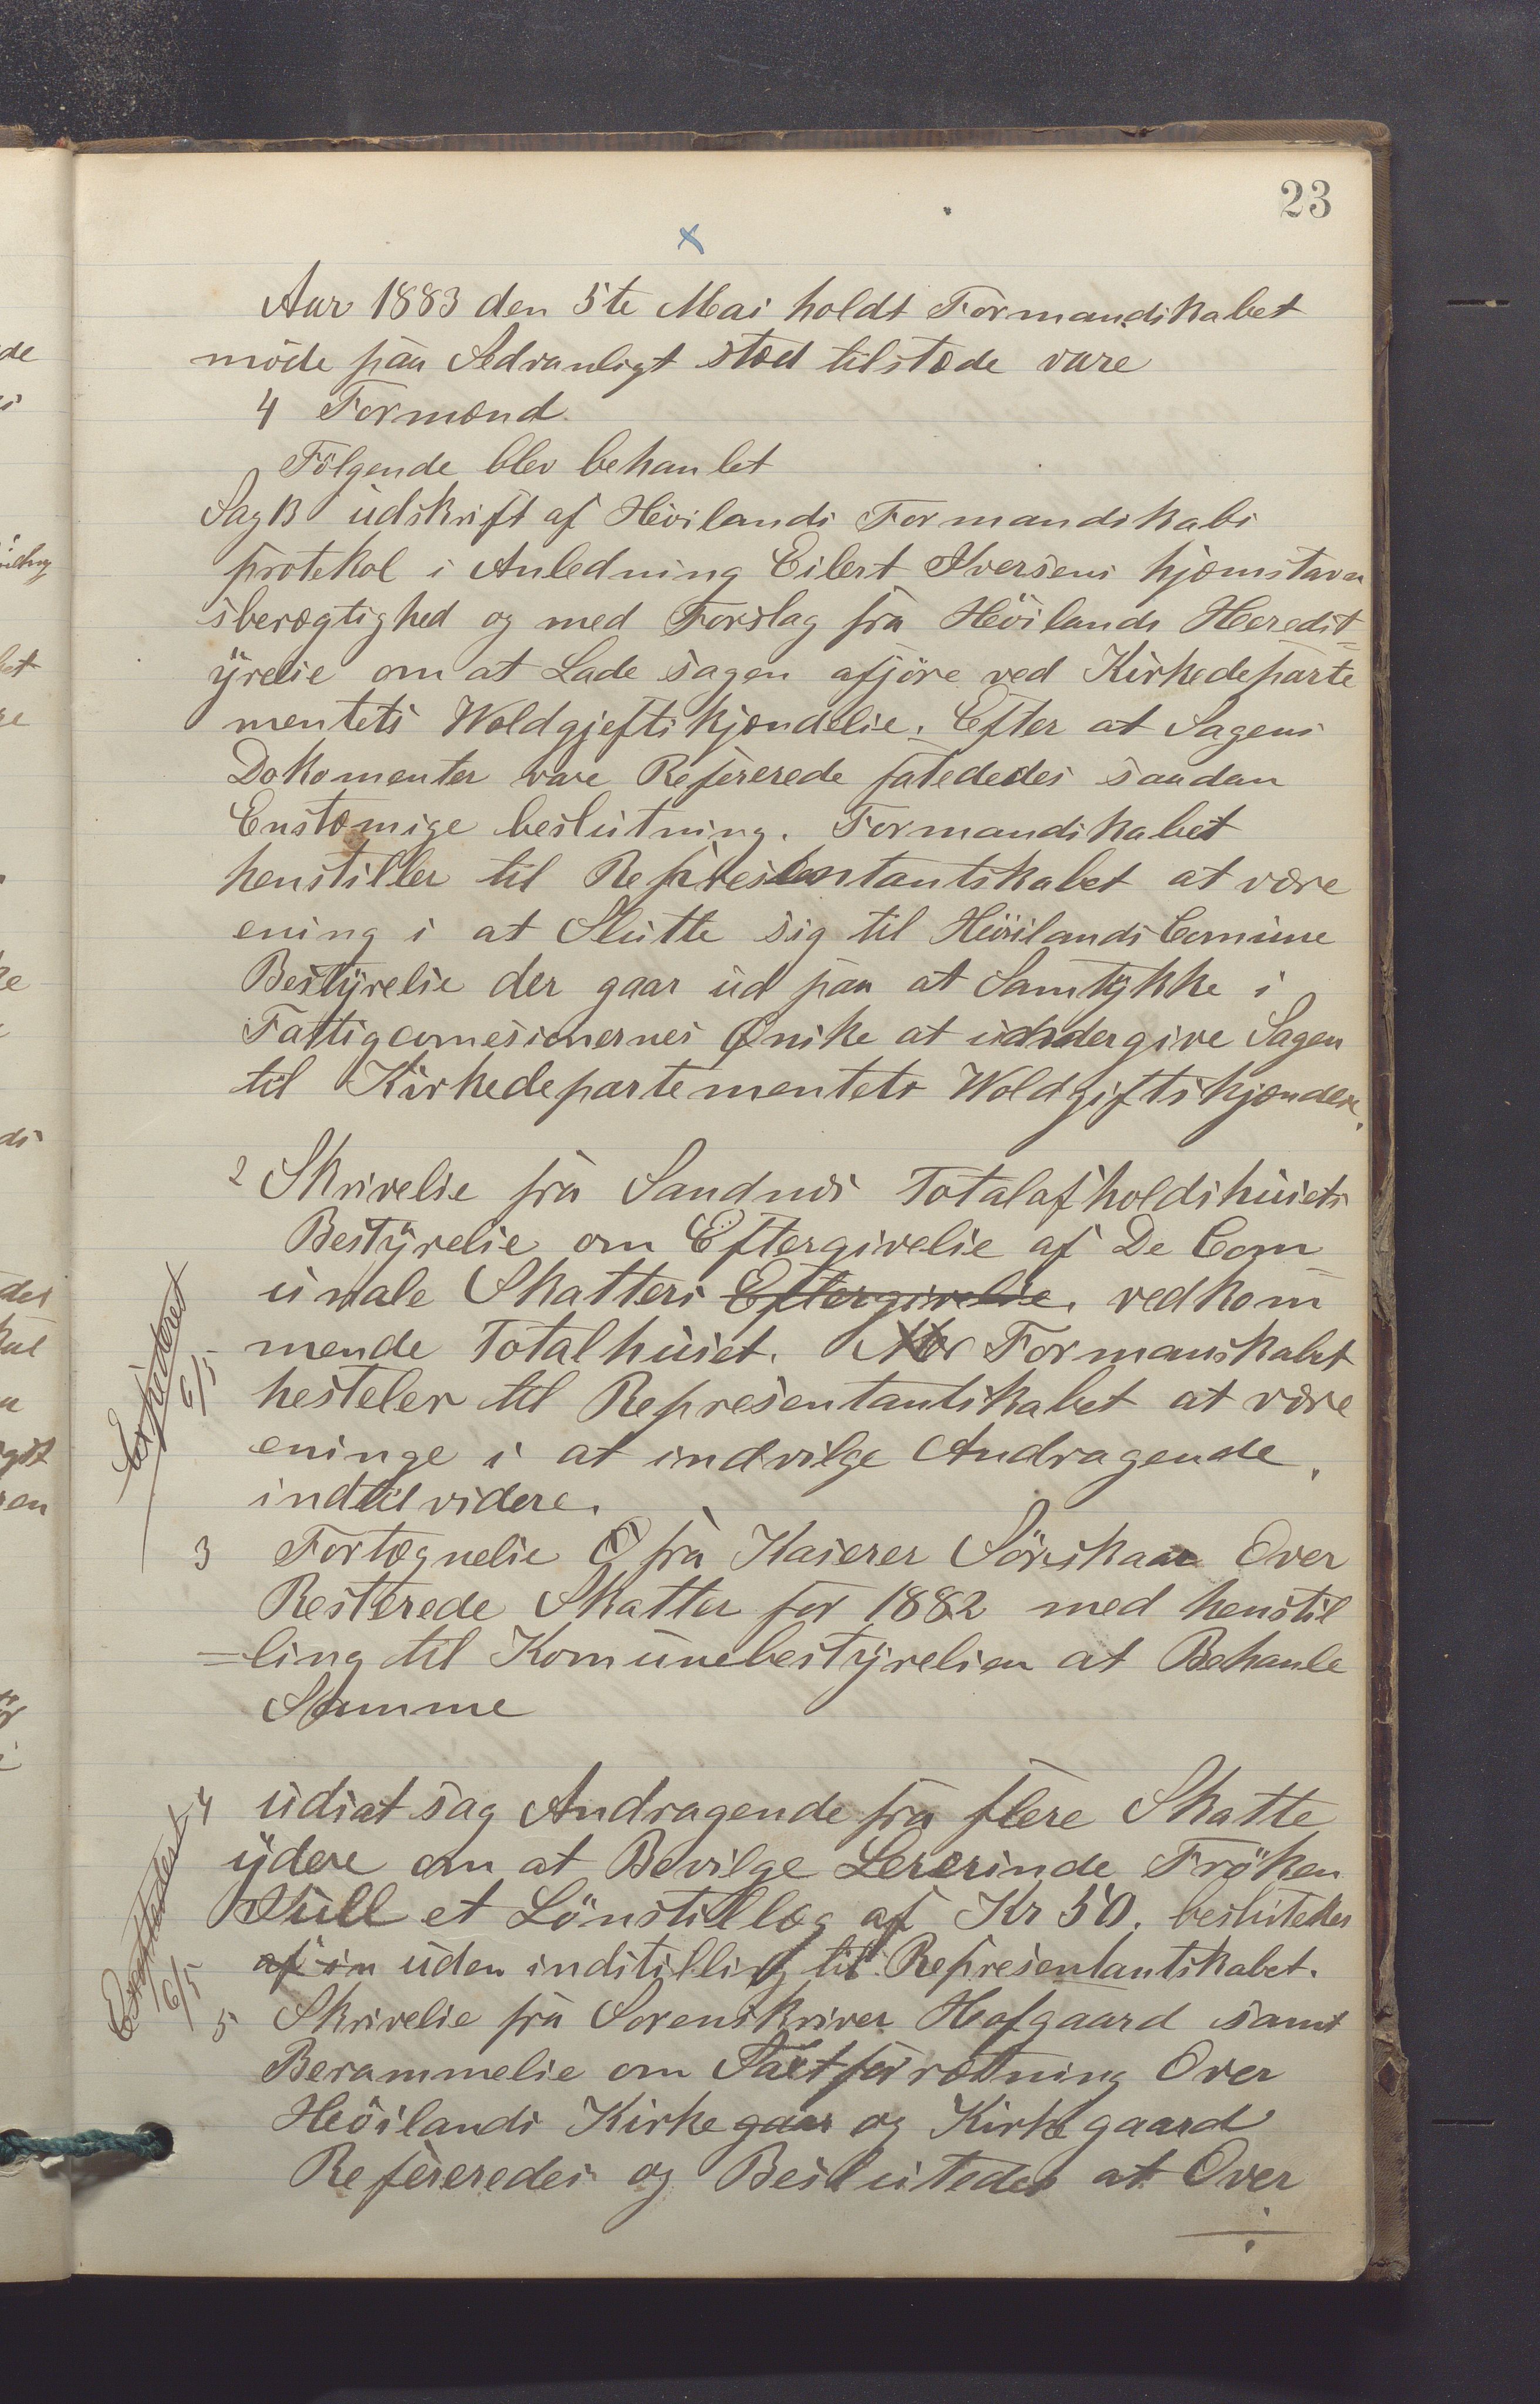 23
x
Aar 1883 den 5te Mai holdt Formandskabet
möde paa Sedvanligt stæd tilstæde vare
4 Formænd
Fölgende blev behanlet
Sag 13 udskrift af Höilands Formandskabs
protekol i Anledning Eilert Iversens hjæmstavn
sberægtighed og med Forslag fra Höilands Heredst=
yrelse om at Lade sagen afjöre ved Kirkedeparte
mentets Woldgjeftskjændelse. Efter at Sagens
Dokomenter vare Refererede fatededes saadan
Enstæmige beslutning. Formandskabet
henstiller til Represæntantskabet at være
ening i at Slutte sig til Höilands Comune
Bestyrelse der gaar ud paa at Samtykke i
Fattigcomesionernes Ønske at undergive Sagen
til Kirkedepartementets Woldgiftskjændere.
2 Skrivelse fra Sandnæs Totalafholdshusets
Bestyrelse om Eftergivelse af De Com
unale Skatters Eftergivelse. vedkom
mende Totalhuset. Formanskabet
hesteler til Represæntantskabet at være
eninge i at indvilge Andragende.
indtil videre.
Expederet
6/5
3 Fortægnelse fra Kaserer Sörskaar Over
Resterede Skatter for 1882 med henstil
=ling til Komunebestyrelsen at Behanle
Samme
4 udsat sag Andragende fra flere Skatte
ydere om at Bevilge Lererinde Fröken
Juell et Lönstillæg af Kr 50. beslutedes
af in uden indstilling til Represæntantskabet.
Expederet
6/5
5 Skrivelse fra Sorenskriver Hofgaard samt
Berammelse om Taxtforrætning Over
Höilands Kirkegaar og Kirkegaard
Refereredes og Beslutedes at Over